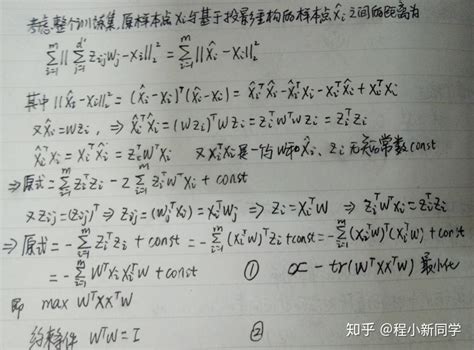 考虑整个训练集,原样本点 xᵢ 与基于投影重构的样本点 x̂ᵢ 之间的距离为
∑ᵢ₌₁ᵐ ||∑ⱼ₌₁ᵈ' zᵢⱼwⱼ - xᵢ||₂² = ∑ᵢ₌₁ᵐ ||x̂ᵢ - xᵢ||₂²
其中 ||x̂ᵢ - xᵢ||₂² = (x̂ᵢ - xᵢ)ᵀ(x̂ᵢ - xᵢ) = x̂ᵢᵀx̂ᵢ - x̂ᵢᵀxᵢ - xᵢᵀx̂ᵢ + xᵢᵀxᵢ
又 x̂ᵢ = wzᵢ, ⇒ x̂ᵢᵀx̂ᵢ = (wzᵢ)ᵀwzᵢ = zᵢᵀwᵀwzᵢ = zᵢᵀzᵢ
x̂ᵢᵀxᵢ = xᵢᵀx̂ᵢ = zᵢᵀwᵀxᵢ 又 xᵢᵀxᵢ 是一与w和x̂ᵢ、zᵢ无关的常数 const
⇒ 原式 = ∑ᵢ₌₁ᵐ zᵢᵀzᵢ - 2∑ᵢ₌₁ᵐ zᵢᵀwᵀxᵢ + const
又 zᵢⱼ = (zᵢⱼ)ᵀ ⇒ zᵢⱼ = (wⱼᵀxᵢ) = xᵢᵀwⱼ ⇒ zᵢ = xᵢᵀw ⇒ zᵢᵀwᵀxᵢ = zᵢᵀzᵢ
⇒ 原式 = -∑ᵢ₌₁ᵐ zᵢᵀzᵢ + const = -∑ᵢ₌₁ᵐ (xᵢᵀw)ᵀzᵢ + const = -∑ᵢ₌₁ᵐ (xᵢᵀw)ᵀ(xᵢᵀw) + const
= -∑ᵢ₌₁ᵐ wᵀxᵢxᵢᵀw + const ① ∝ -tr(wᵀxxᵀw) 最小化
即 max wᵀxxᵀw
约束条件 wᵀw = I ②
知乎 @程小新同学